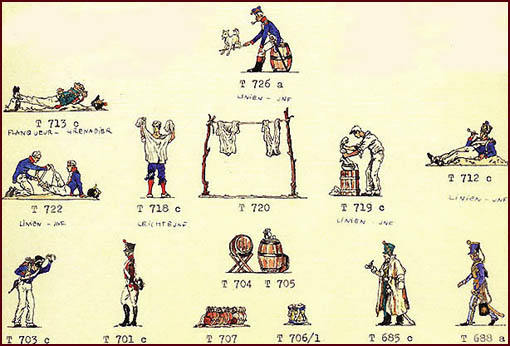 T 726 a
LINIEN - INF
T 713 c
FLANQUEUR - GRENADIER
T 722
LINIEN - INF
T 718 c
LEICHTEINF
T 720
T 719 c
LINIEN - INF
T 712 c
LINIEN - INF
T 704 T 705
T 703 c
T 701 c
T 707
T 706/1
T 685 c
T 688 a